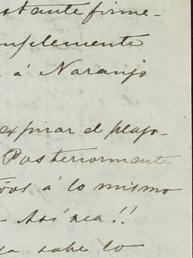 bstante firme-
mplemente
á Naranjo
expirar el plazo
Posteriormente
á lo mismo
Así sea!!
sabe lo